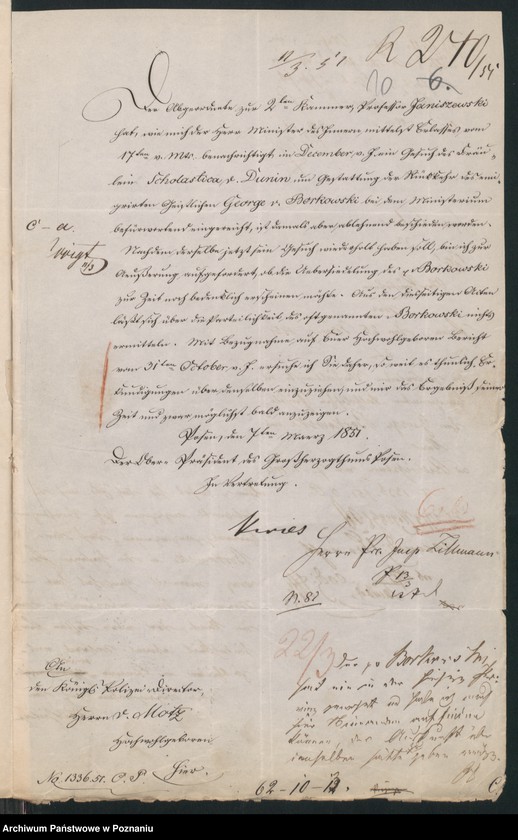 11/3. 51
R 270/51
10 6.
Der Abgeordnete zur 2ten Kammer, Professor Janiszewski
hat, wie mich der Herr Minister des Innern mittelst Erlasses vom
17ten v. Mts. benachrichtigt, im December v. J. ein Gesuch des Fräu-
lein Scholastica v. Dunin um Gestattung der Rückkehr des emi-
grirten Geistlichen George v. Borkowski bei dem Ministerium
befürwortend eingereicht, ist damals aber ablehnend beschieden worden.
Nachdem derselbe jetzt sein Gesuch wiederholt haben soll, bin ich zur
Aeußerung aufgefordert, ob die Uebersiedelung des p Borkowski
zur Zeit noch bedenklich erscheinen möchte. Aus den diesseitigen Acten
läßt sich über die Parteilichkeit des oftgenannten Borkowski nichts
ermitteln. Mit Bezugnahme auf Euer Hochwohlgeboren Bericht
vom 31ten October v. J. ersuche ich Sie daher, so weit es thunlich, Er-
kundigungen über denselben einzuziehen, und mir das Ergebniß seiner
Zeit und zwar möglichst bald anzuzeigen.
Posen, den 7ten Maerz 1851.
Der Ober-Präsident des Großherzogthums Posen.
In Vertretung.
c - a.
Voigt
11/3
Herrn Pol. Insp. Tillmann
13/3
N. 82
22/3
Der p Borkowski
hat nie in der hiesigen Pro-
vinz
An
den Königl. Polizei-Director,
Herrn v. Motz
Hochwohlgeboren
Hier.
No 1336. 51. C. P.
62 - 10 - 12.
C.
Archiwum Państwowe w Poznaniu